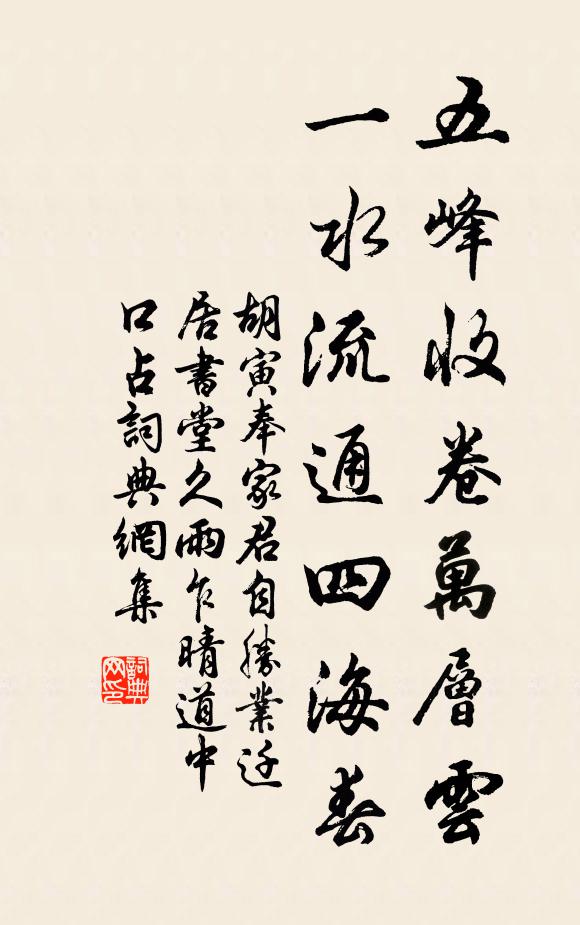 五峰收卷萬層雲
一水流通四海春
胡寅奉家君自勝業迁
居書堂久雨乍晴道中
口占詞典網集
詞典
网印